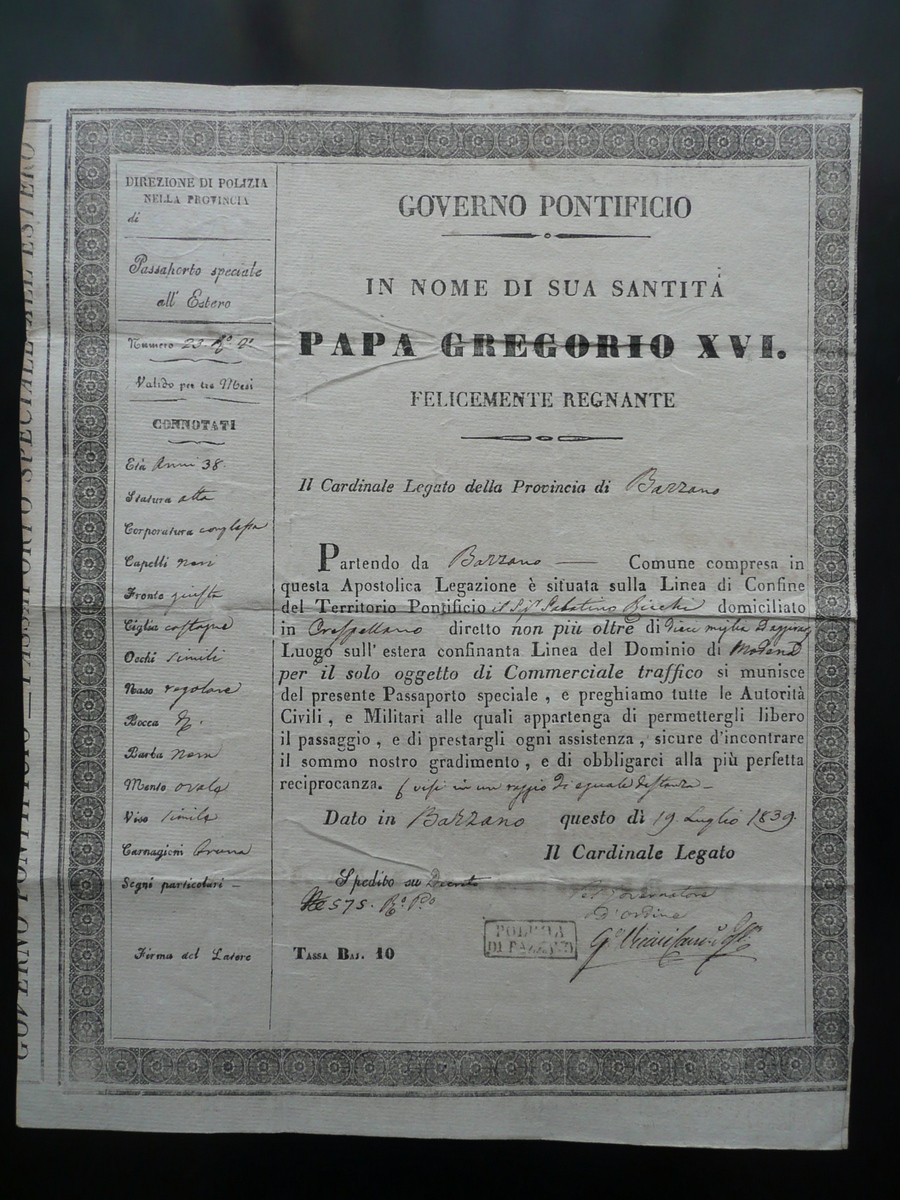 GOVERNO PONTIFICIO — PASSAPORTO SPECIALE ALL' ESTERO
DIREZIONE DI POLIZIA
NELLA PROVINCIA
di
Passaporto speciale
all' Estero
Numero 23
Valido per tre Mesi
CONNOTATI
Età Anni 38.
Statura alta
Corporatura
Capelli neri
Fronte giusta
Ciglia castagne
Occhi simili
Naso regolare
Bocca
Barba nera
Mento ovale
Viso simile
Carnagioni bruna
Segni particolari —
Firma del Latore
GOVERNO PONTIFICIO
IN NOME DI SUA SANTITÀ
PAPA GREGORIO XVI.
FELICEMENTE REGNANTE
Il Cardinale Legato della Provincia di Bazzano
Partendo da Bazzano — Comune compresa in
questa Apostolica Legazione è situata sulla Linea di Confine
del Territorio Pontificio il Sig. Sabatino domiciliato
in Crespellano diretto non più oltre di dieci miglia
Luogo sull' estera confinante Linea del Dominio di Modena
per il solo oggetto di Commerciale traffico si munisce
del presente Passaporto speciale , e preghiamo tutte le Autorità
Civili , e Militari alle quali appartenga di permettergli libero
il passaggio , e di prestargli ogni assistenza , sicure d'incontrare
il sommo nostro gradimento , e di obbligarci alla più perfetta
reciprocanza. in un raggio di eguale distanza —
Dato in Bazzano questo dì 19 Luglio 1839.
Il Cardinale Legato
Spedito su Decreto
575.
D'ordine
POLIZIA
DI BAZZANO
TASSA BAJ. 10